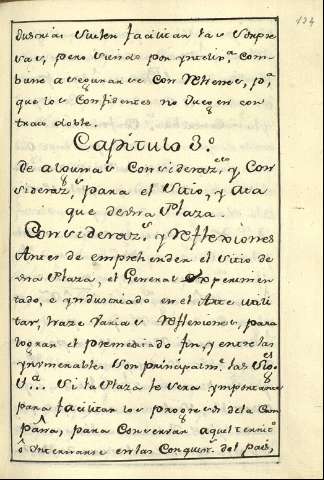 134
dustrias suelen facilitar las sorpre
sas, pero siendo por yntelig.ª com-
biene asegurarse con Rehenes, p.ª
que los Confidentes no Jueguen con
trato doble.
Capitulo 3.º
de algunas Consideraz.es y Con
sideraz.s para el Sitio, y Ata
que de una Plaza.
Consideraz.s y Reflexiones
Antes de emprehender el Sitio de
una Plaza, el General experimen
tado, e yndustriado en el Arte mili
tar, haze varias Reflexiones, para
lograr el premeditado fin, y entre las
ynumerables son principalm.te las
Si la Plaza le sera ymportante
para facilitar los progresos de la Cam
paña, para Conservar aquel territ.º
ô Internarse en las Conquistas del pais,